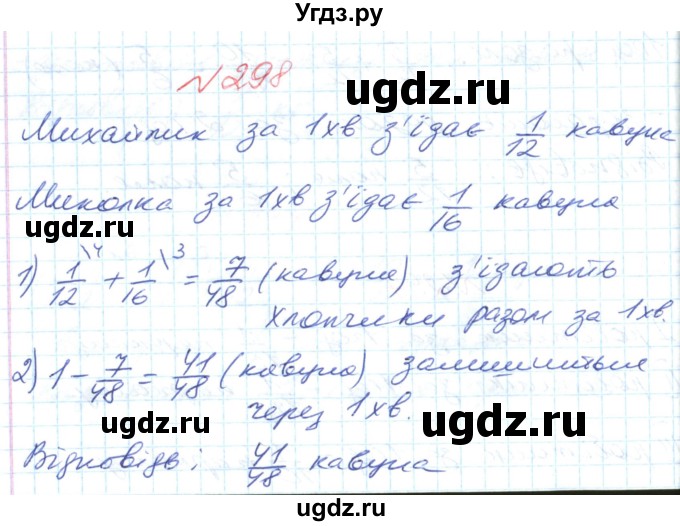 Угдз.ру
№ 298
ugdz.ru
Михайлик за 1хв з'їдає 1/12 кавуна
ugdz.ru
Миколка за 1хв з'їдає 1/16 кавуна
ugdz.ru
1) 1/12 \4 + 1/16 \3 = 7/48 (кавуна) з'їдають
ugdz.ru
хлопчики разом за 1хв.
ugdz.ru
2) 1 - 7/48 = 41/48 (кавуна) залишиться
ugdz.ru
через 1хв.
ugdz.ru
Відповідь: 41/48 кавуна
ugdz.ru